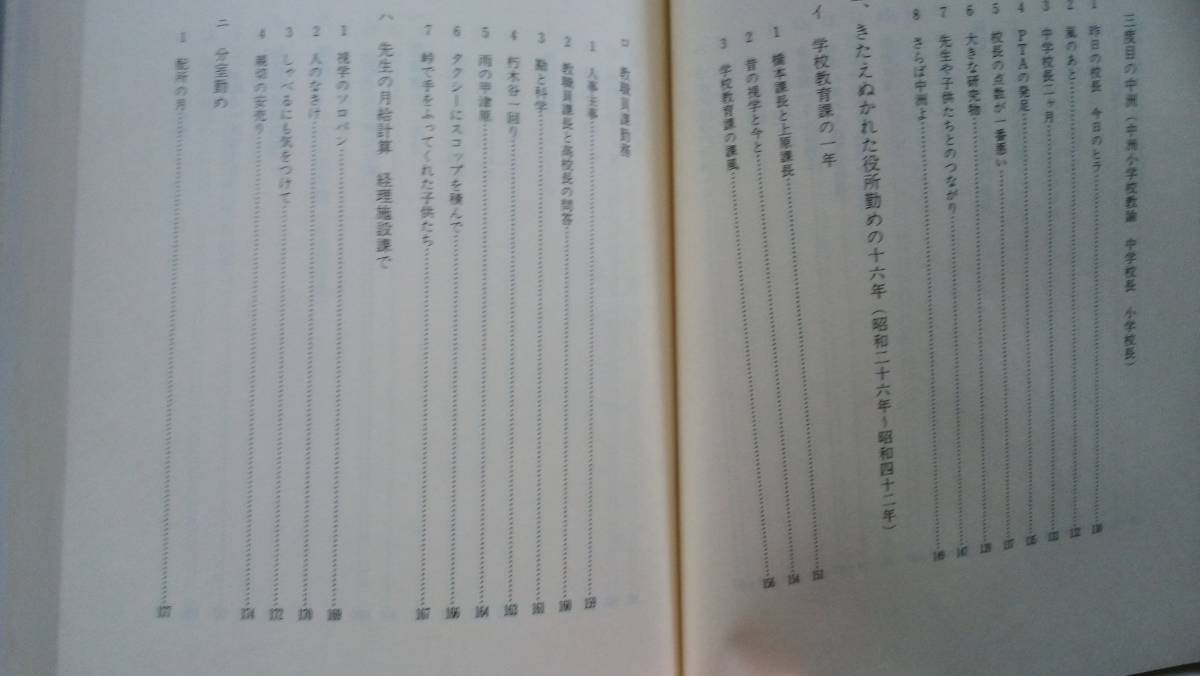 三度目の中洲（中洲小学校教諭　中学校長　小学校長）
1　昨日の校長　今日のヒラ……130
2　嵐のあと……132
3　中学校長二ヶ月……133
4　PTAの発足……135
5　校長の点数が一番悪い……137
6　大きな研究物……139
7　先生や子供たちとのつながり……147
8　さらば中洲よ……149
、きたえぬかれた役所勤めの十六年（昭和二十六年〜昭和四十二年）
イ　学校教育課の一年
1　橋本課長と上原課長……151
2　昔の視学と今と……154
3　学校教育課の課風……156
ロ　教職員課勤務
1　人事主事……159
2　教職員課長と高校長の問答……160
3　勘と科学……161
4　朽木谷一回り……163
5　雨の甲津原……164
6　タクシーにスコップを積んで……166
7　峠で手をふってくれた子供たち……167
ハ　先生の月給計算　経理施設課で
1　視学のソロバン……169
2　人のなさけ……170
3　しゃべるにも気をつけて……172
4　親切の安売り……174
ニ　分室勤め
1　配所の月……177